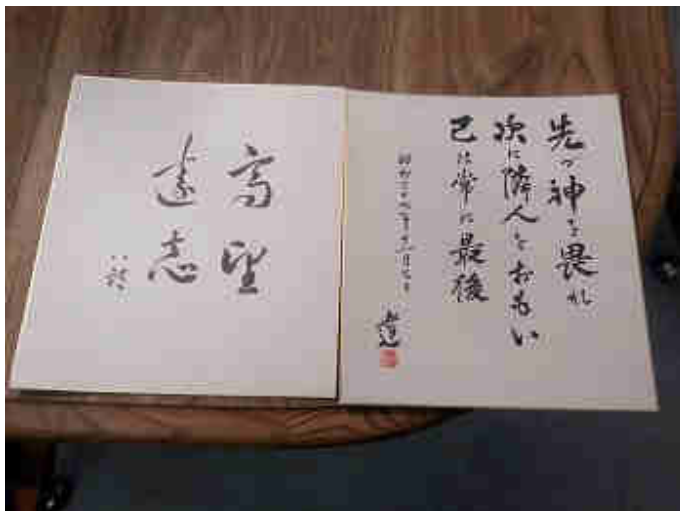 先づ神を畏れ
次に隣人をおもい
己は常に最後
高望
遠志